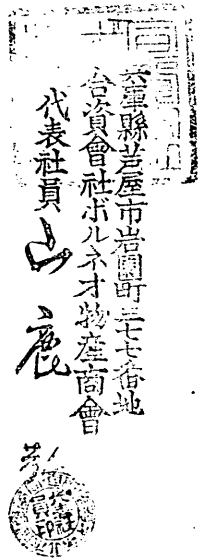 兵庫縣芦屋市岩園町三七七番地
合資會社ボルネオ物産商會
代表社員 山鹿